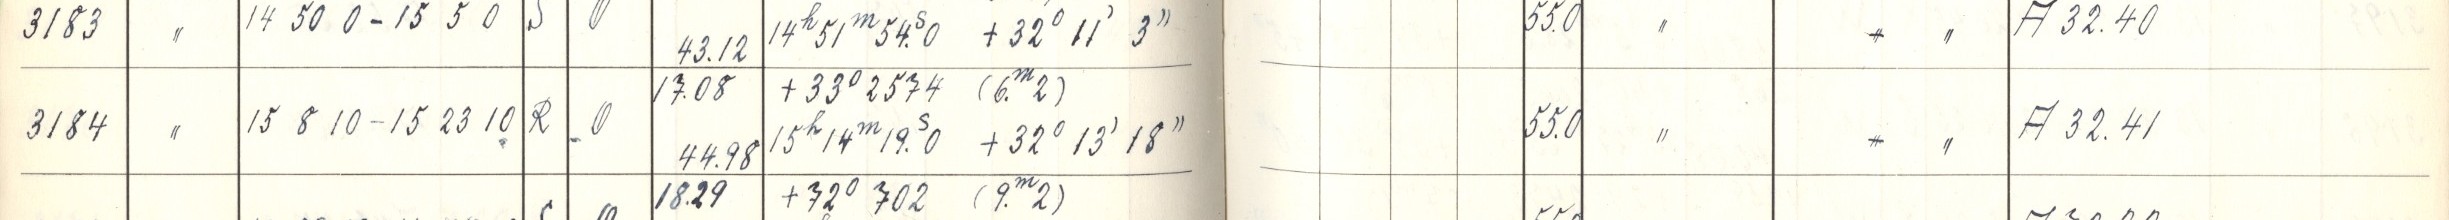 3183 " 14 50 0 - 15 5 0 S 0 43.12 14h 51m 54.s0 + 32° 11' 3" 55.0 " + " A 32.40
17.08 + 33° 2574 (6.m2)
3184 " 15 8 10 - 15 23 10 R 0 44.98 15h 14m 19.s0 + 32° 13' 18" 55.0 " + " A 32.41
18.29 + 72° 702 (9.m2)